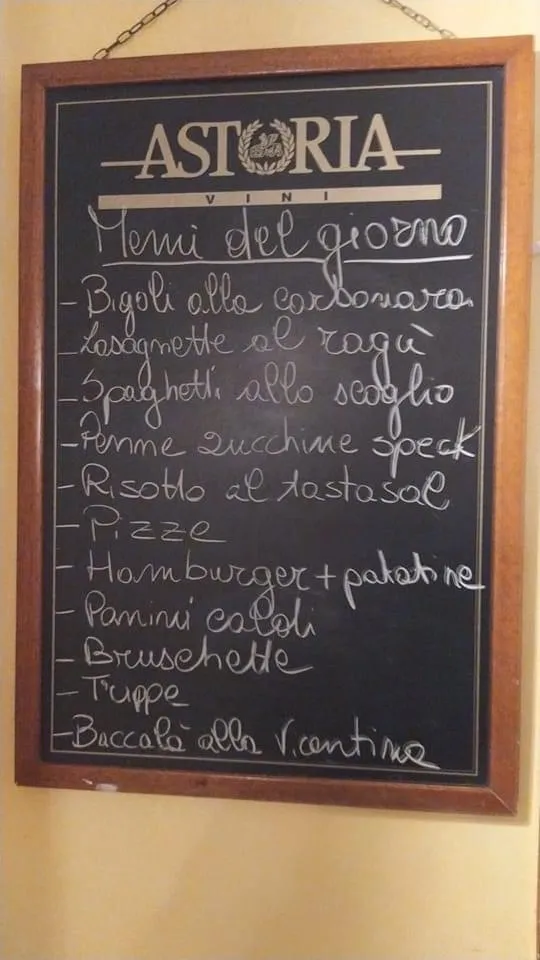 ASTORIA
VINI
Menù del giorno
- Bigoli alla carbonara
- Lasagnette al ragù
- Spaghetti allo scoglio
- Penne zucchine speck
- Risotto al tastasal
- Pizze
- Hamburger + patatine
- Panini caldi
- Bruschette
- Trippe
- Baccalà alla Vicentina